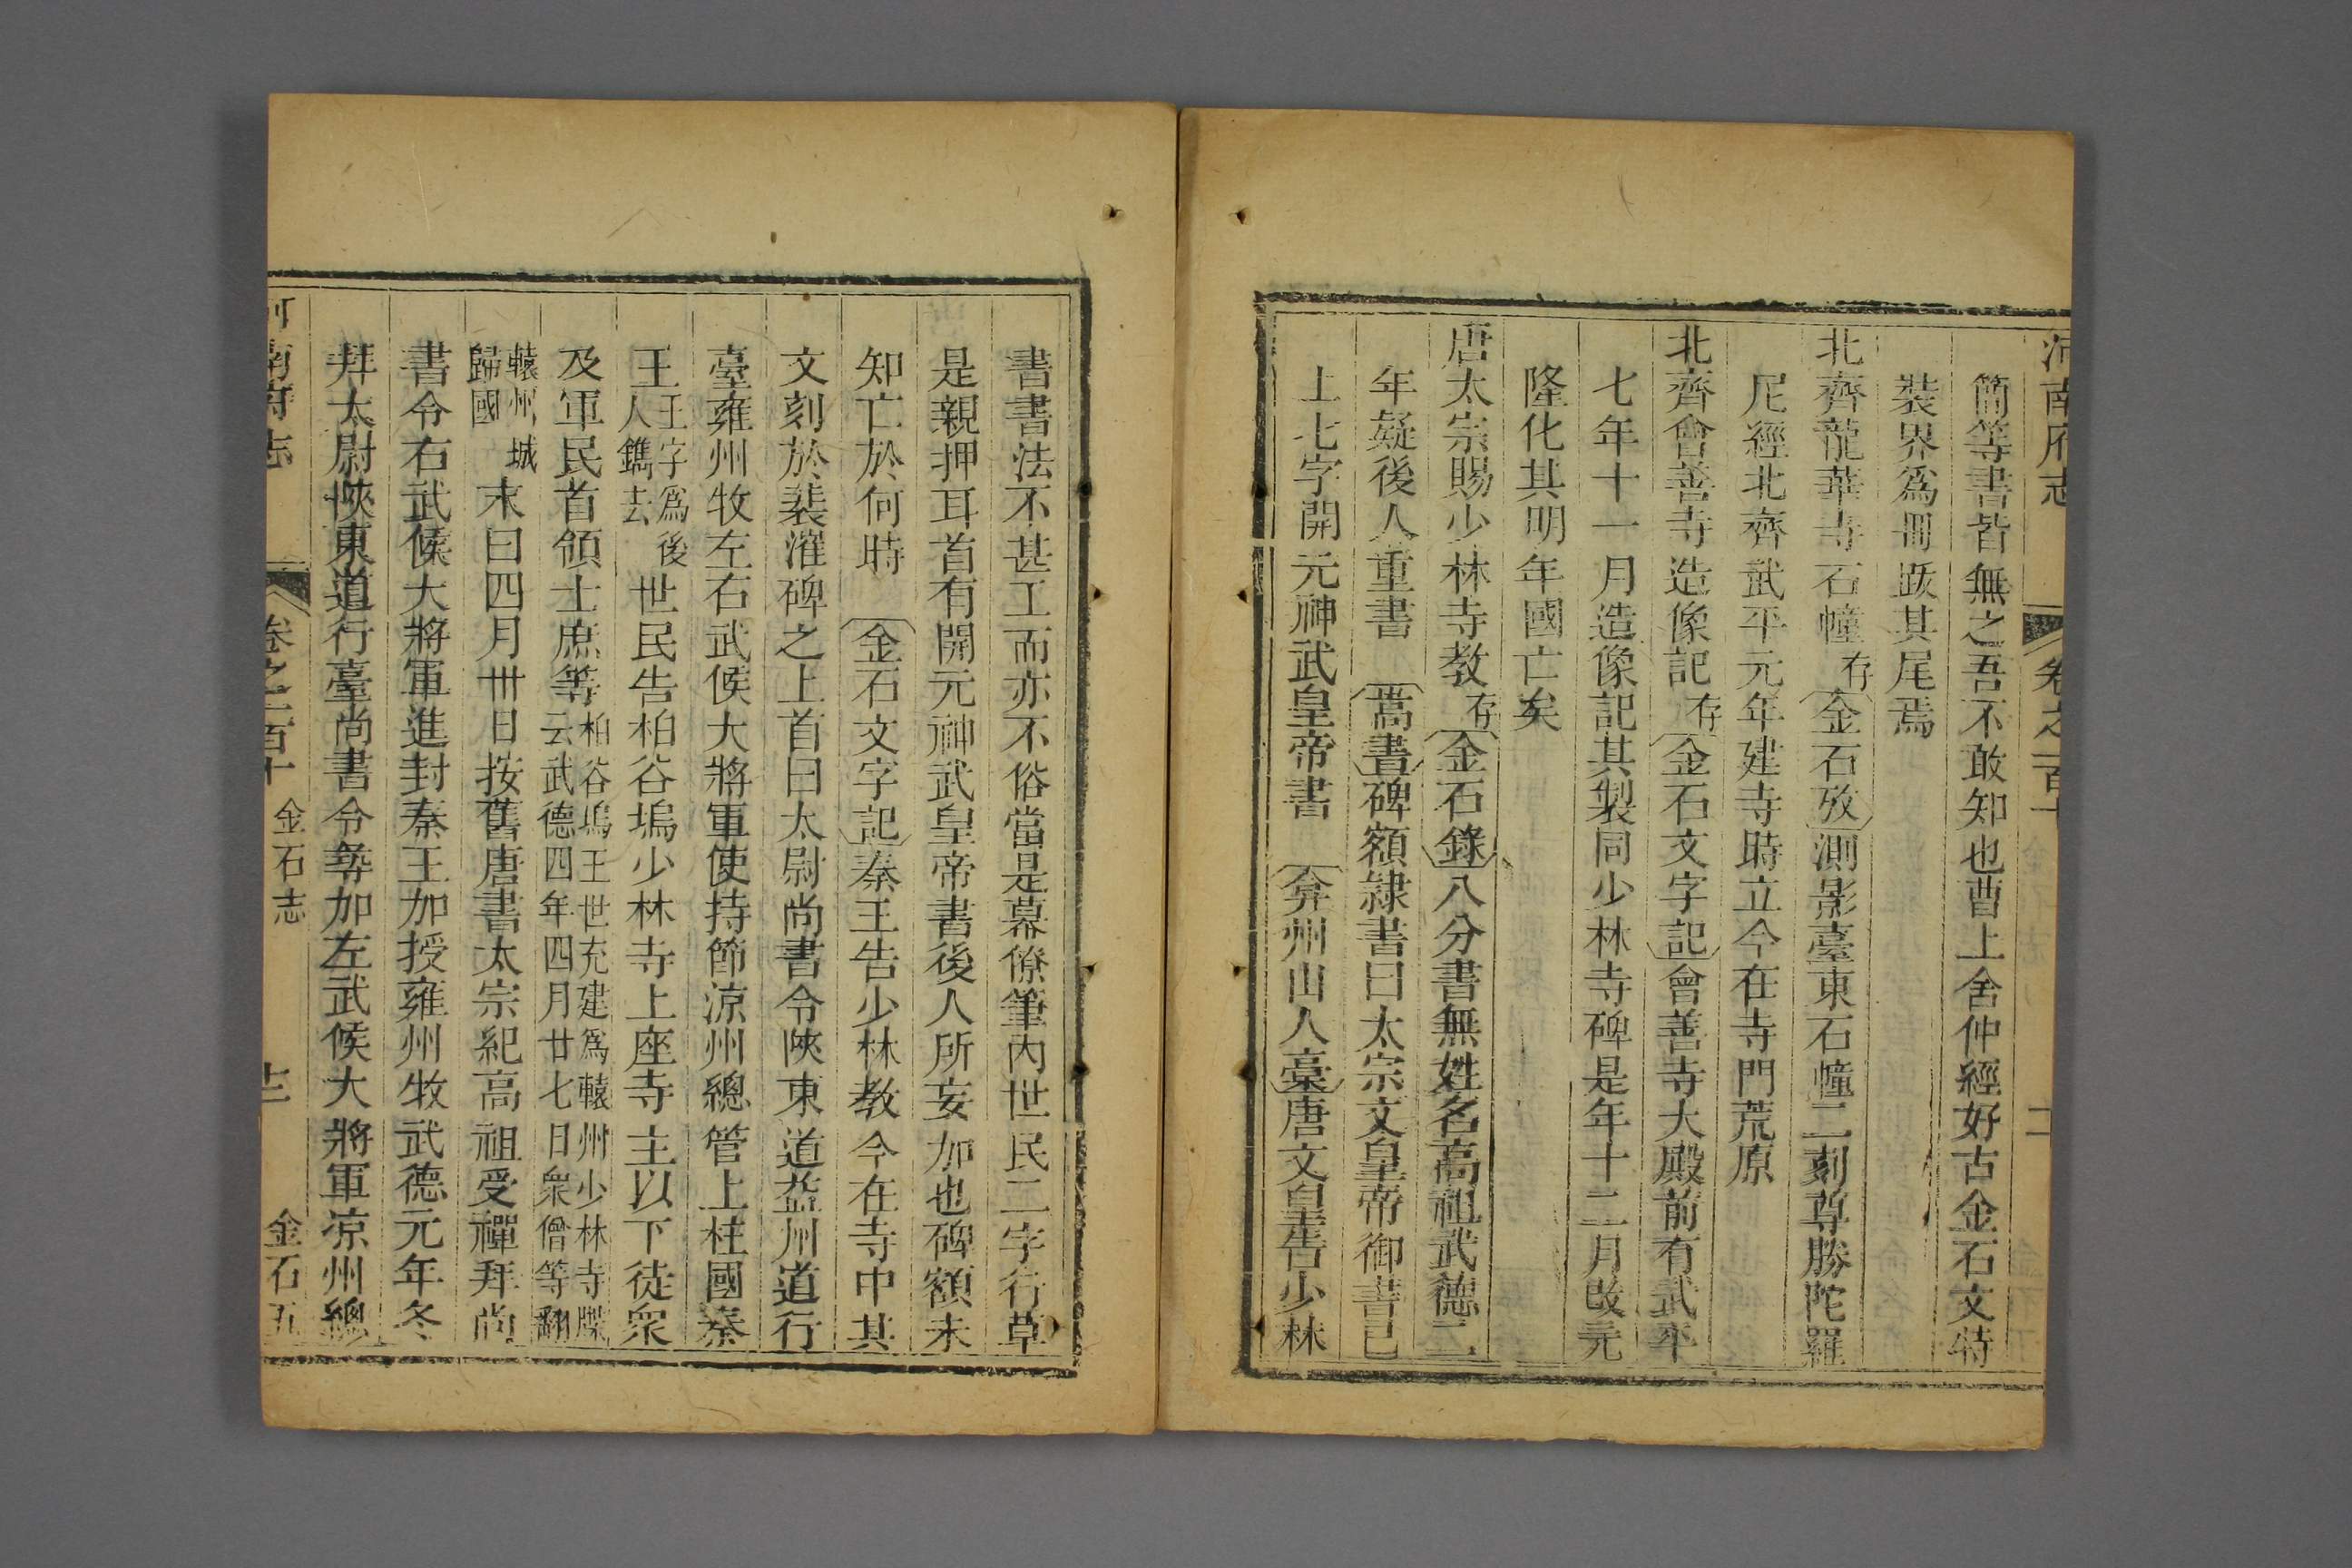 河南府志 卷之一百十 二
簡等書皆無之吾不敢知也曹上舍仲經好古金石文特
裝界爲冊跋其尾焉
北齊龍華寺石幢存金石攷測影臺東石幢二刻尊勝陀羅
尼經北齊武平元年建寺時立今在寺門荒原
北齊會善寺造像記存金石文字記會善寺大殿前有武平
七年十一月造像記其製同少林寺碑是年十二月改元
隆化其明年國亡矣
唐太宗賜少林寺教存金石錄八分書無姓名高祖武德二
年疑後人重書 嵩書碑額隸書曰太宗文皇帝御書已
上七字開元神武皇帝書 弇州山人藁唐文皇告少林
書書法不甚工而亦不俗當是幕僚筆內世民二字行草
是親押耳首有開元神武皇帝書後人所妄加也碑額未
知亡於何時 金石文字記秦王告少林教今在寺中其
文刻於裴漼碑之上首曰太尉尚書令陝東道益州道行
臺雍州牧左右武候大將軍使持節涼州總管上柱國秦
王王字爲後人鐫去世民告柏谷塢少林寺上座寺主以下徒衆
及軍民首領士庶等柏谷塢王世充建爲轘州少林寺牒云武德四年四月廿七日衆僧等翻
轘州城歸國末曰四月卅日按舊唐書太宗紀高祖受禪拜尚
書令右武候大將軍進封秦王加授雍州牧武德元年冬
拜太尉陝東道行臺尚書令尋加左武候大將軍涼州總
河南府志 卷之一百十 金石志 十二 金石五